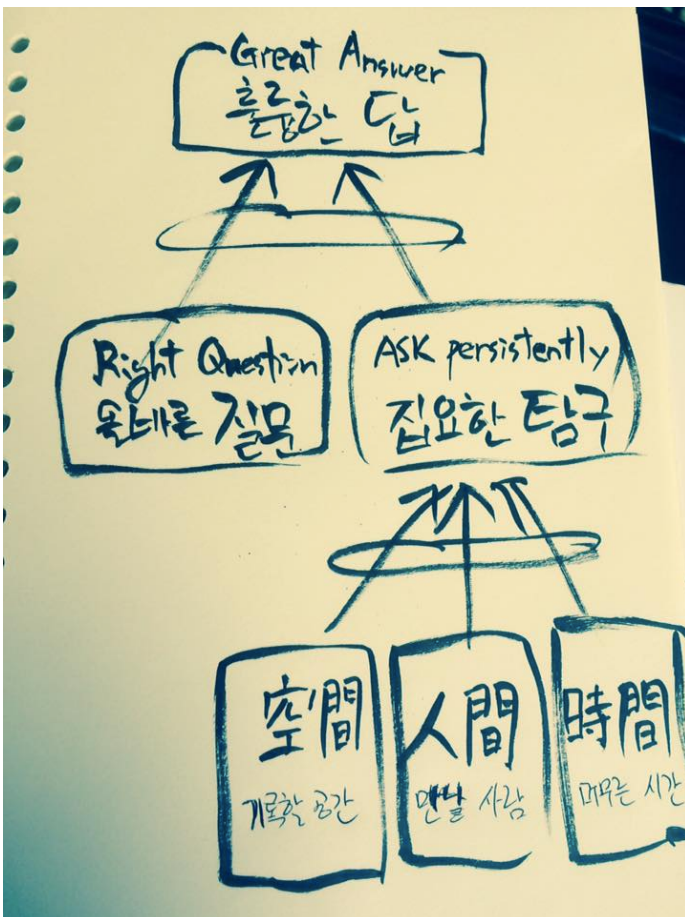 Great Answer
훌륭한 답
Right Question
올바른 질문
ASK persistently
집요한 탐구
空間
기록할 공간
人間
만날 사람
時間
머무른 시간